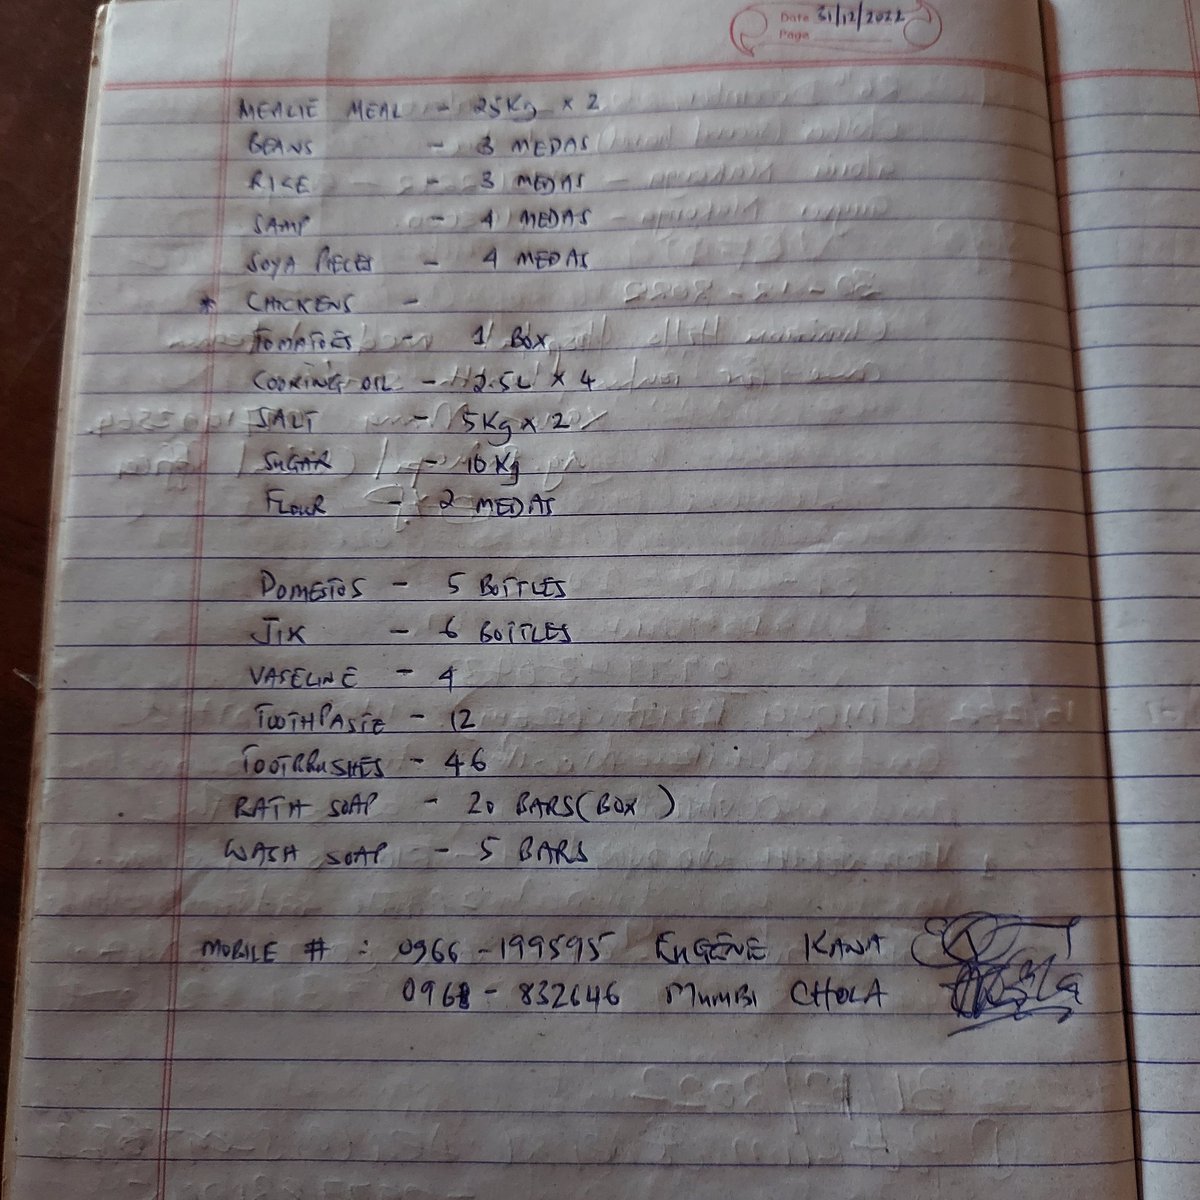 Date 31/12/2022
Page
MEALIE MEAL - 25Kg x 2
BEANS - 3 MEDAS
RICE - 3 MEDAS
SAMP - 4 MEDAS
SOYA PIECES - 4 MEDAS
* CHICKENS -
TOMATOES - 1 BOX
COOKING OIL - 2.5L x 4
SALT - 5Kg x 2
SUGAR - 10 Kg
FLOUR - 2 MEDAS
DOMESTOS - 5 BOTTLES
JIK - 6 BOTTLES
VASELINE - 4
TOOTHPASTE - 12
TOOTBRUSHES - 46
BATH SOAP - 20 BARS (BOX)
WASH SOAP - 5 BARS
MOBILE # : 0966-199595 EUGENE KANA
0968 - 832646 MUMBI CHOLA